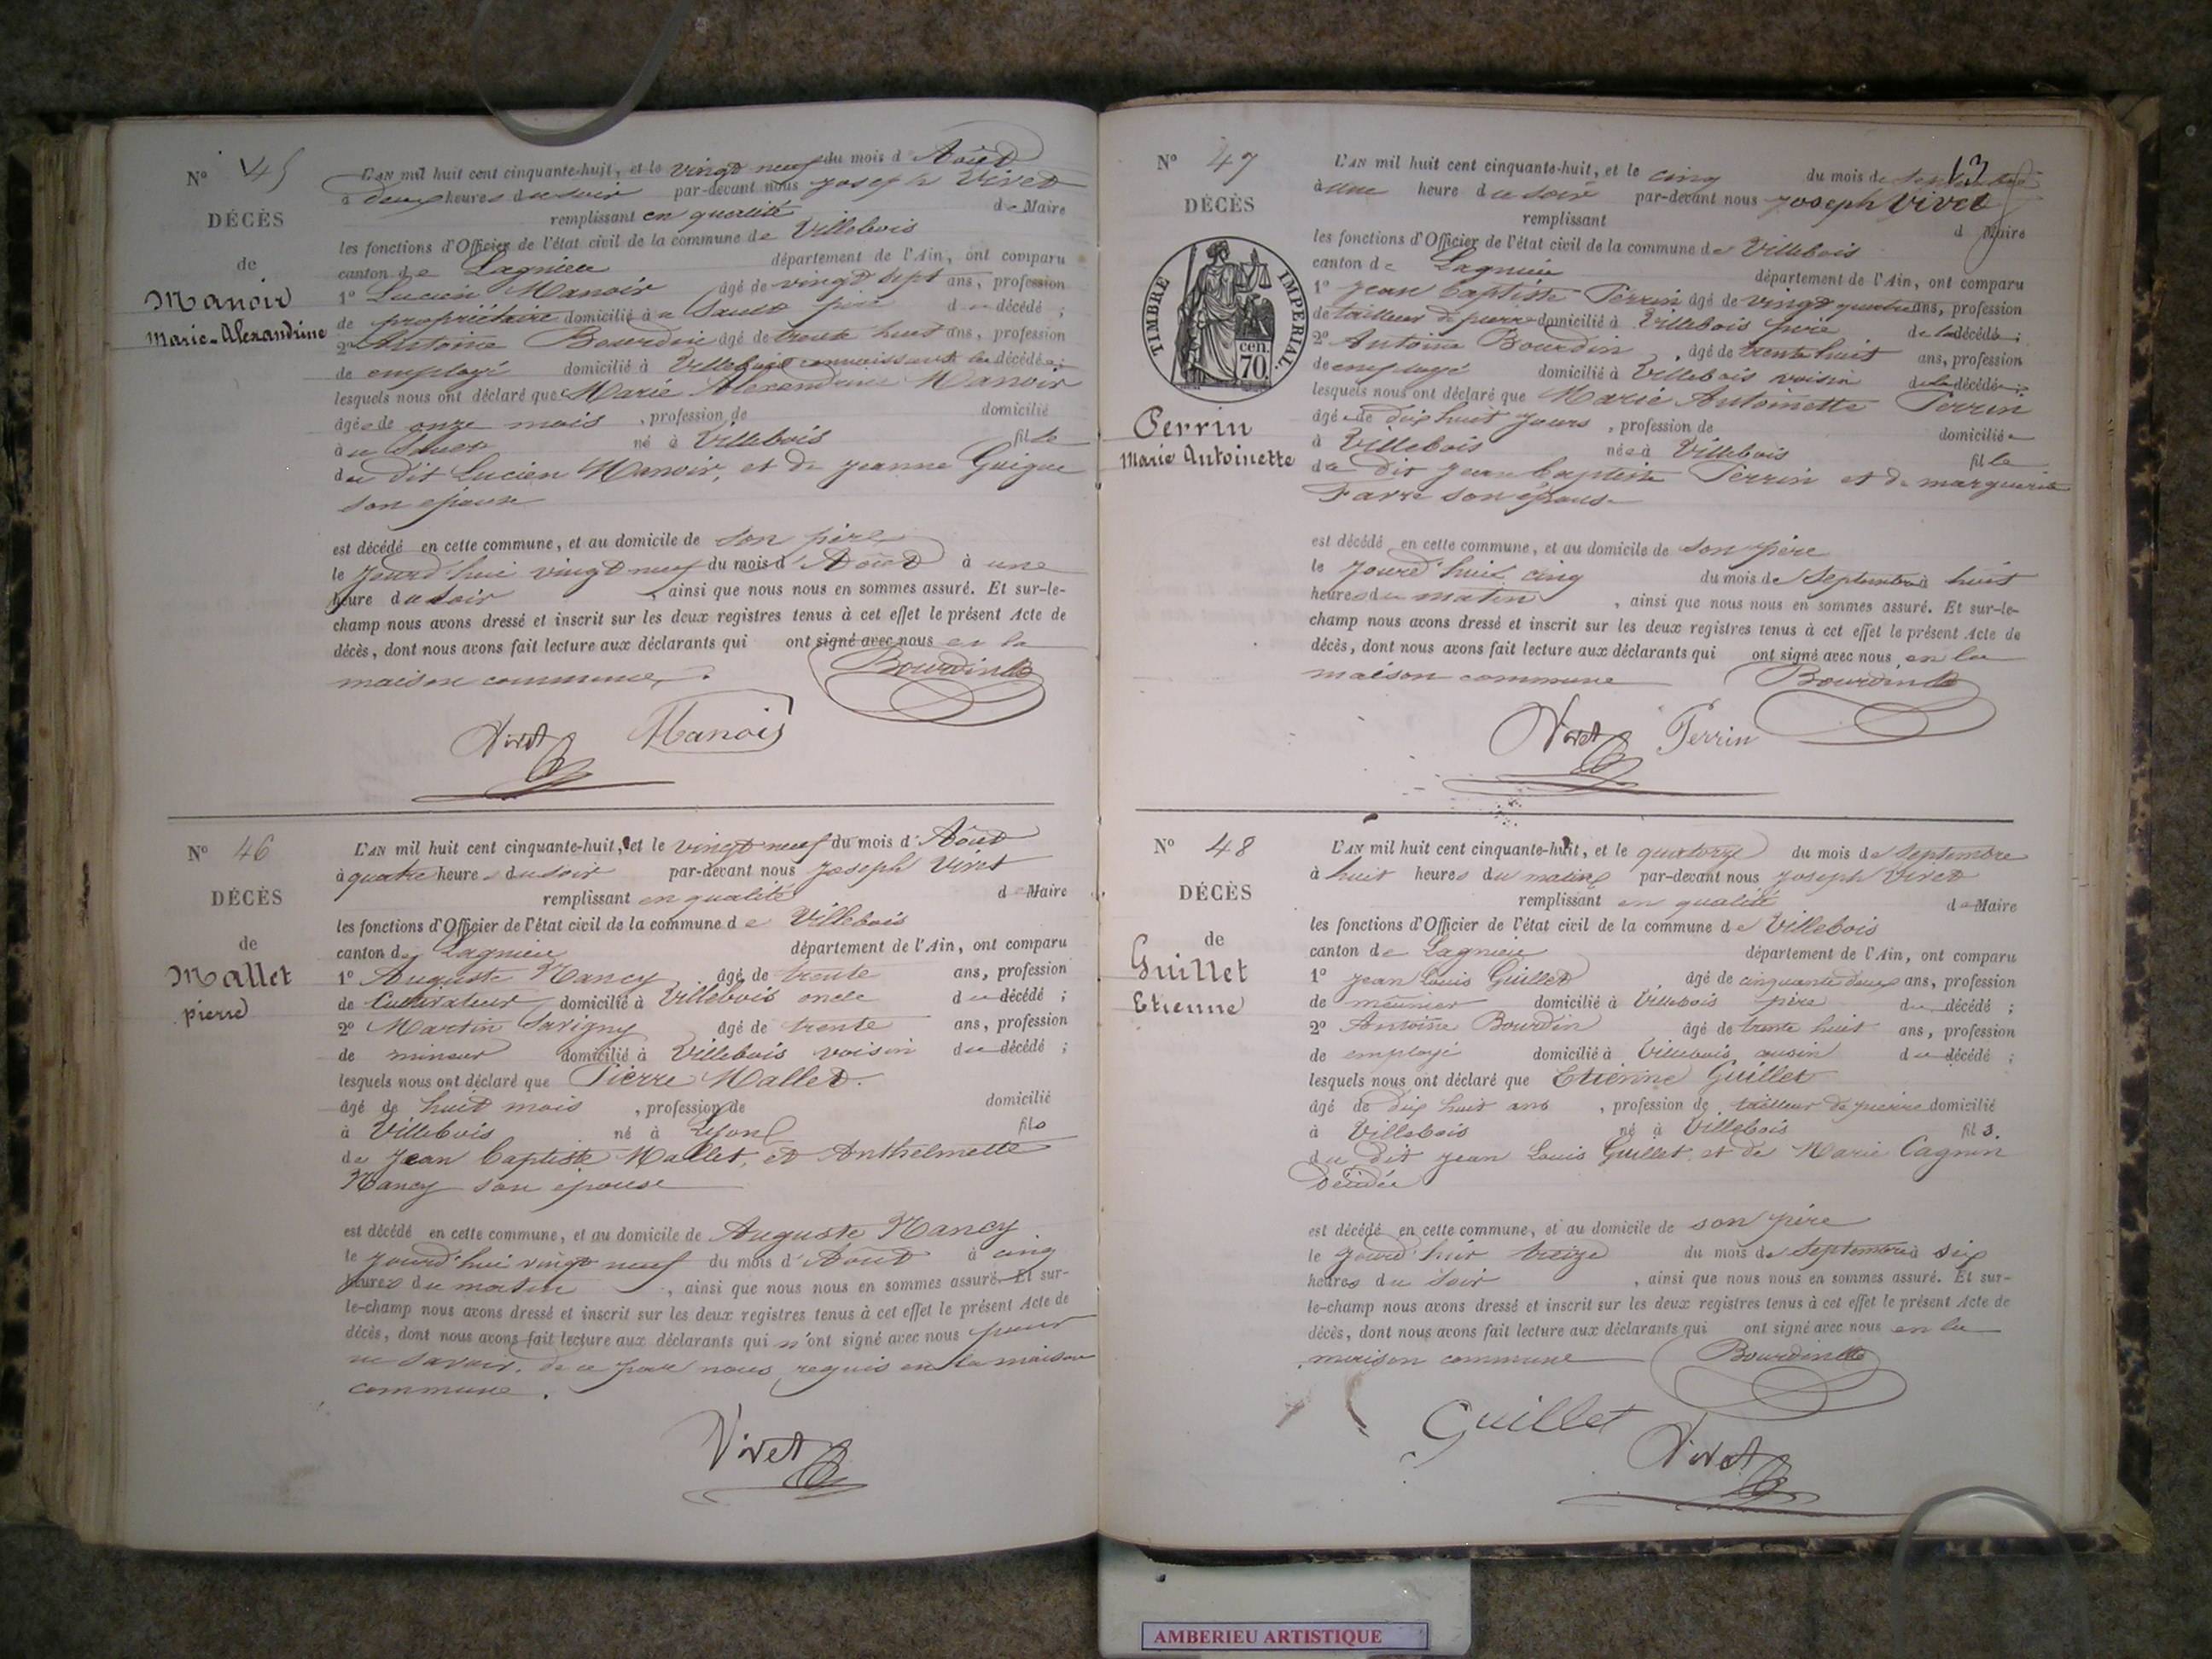 N° 45
DÉCÈS
de
Manoir
Marie-Alexandrine
L'AN mil huit cent cinquante-huit, et le vingt neuf du mois d'Août
à deux heures du soir par-devant nous Joseph Vivet
remplissant en qualité de Maire
les fonctions d'Officier de l'état civil de la commune de Villebois
canton de Lagnieu département de l'Ain, ont comparu
1° Lucien Manoir âgé de vingt sept ans, profession
de propriétaire domicilié à au Sault père du décédé ;
2° Antoine Bourdin âgé de trente huit ans, profession
de employé domicilié à Villebois connaissant la décédée ;
lesquels nous ont déclaré que Marie Alexendrine Manoir
âgée de onze mois , profession de domicilié
à au Sault né à Villebois fille
du dit Lucien Manoir, et de jeanne Guigue
son épouse
est décédé en cette commune, et au domicile de son père
le jourd'hui vingt neuf du mois d'Août à une
heure du soir , ainsi que nous nous en sommes assuré. Et sur-le-
champ nous avons dressé et inscrit sur les deux registres tenus à cet effet le présent Acte de
décès, dont nous avons fait lecture aux déclarants qui ont signé avec nous en la
maison commune.
Bourdin
Vivet Manoir
N° 46
DÉCÈS
de
Mallet
pierre
L'AN mil huit cent cinquante-huit, et le vingt neuf du mois d'Août
à quatre heures du soir par-devant nous Joseph Vivet
remplissant en qualité de Maire
les fonctions d'Officier de l'état civil de la commune de Villebois
canton de Lagnieu département de l'Ain, ont comparu
1° Auguste Nancy âgé de trente ans, profession
de Cultivateur domicilié à Villebois oncle du décédé ;
2° Martin Savigny âgé de trente ans, profession
de mineur domicilié à Villebois voisin du décédé ;
lesquels nous ont déclaré que Pierre Mallet.
âgé de huit mois , profession de domicilié
à Villebois né à Lyon fils
de Jean Baptiste Mallet, et Anthelmette
Nancy son épouse
est décédé en cette commune, et au domicile de Auguste Nancy
le jourd'hui vingt neuf du mois d'Août à cinq
heures du matin , ainsi que nous nous en sommes assuré. Et sur-
le-champ nous avons dressé et inscrit sur les deux registres tenus à cet effet le présent Acte de
décès, dont nous avons fait lecture aux déclarants qui n'ont signé avec nous pour
ne savoir. de ce par nous requis en la maison
commune.
Vivet
13
N° 47
DÉCÈS
TIMBRE IMPERIAL.
cen.
70
Perrin
Marie Antoinette
L'AN mil huit cent cinquante-huit, et le cinq du mois de Septembre
à une heure du soir par-devant nous Joseph Vivet
remplissant d Maire
les fonctions d'Officier de l'état civil de la commune de Villebois
canton de Lagnieu département de l'Ain, ont comparu
1° Jean Baptiste Perrin âgé de vingt quatre ans, profession
de tailleur de pierre domicilié à Villebois père de la décédé ;
2° Antoine Bourdin , âgé de trente huit ans, profession
de employé domicilié à Villebois voisin de la décédée ;
lesquels nous ont déclaré que Marie Antoinette Perrin
âgée de dix huit jours , profession de domiciliée
à Villebois née à Villebois fille
du dit Jean Baptiste Perrin et de marguerite
Favre son épouse
est décédé en cette commune, et au domicile de son père
le jourd'hui cinq du mois de Septembre à huit
heures du matin , ainsi que nous nous en sommes assuré. Et sur-le-
champ nous avons dressé et inscrit sur les deux registres tenus à cet effet le présent Acte de
décès, dont nous avons fait lecture aux déclarants qui ont signé avec nous en la
maison commune
Bourdin
Vivet Perrin
N° 48
DÉCÈS
de
Guillet
Etienne
L'AN mil huit cent cinquante-huit, et le quatorze du mois de Septembre
à huit heures du matin par-devant nous Joseph Vivet
remplissant en qualité de Maire
les fonctions d'Officier de l'état civil de la commune de Villebois
canton de Lagnieu département de l'Ain, ont comparu
1° Jean Louis Guillet âgé de cinquante deux ans, profession
de meunier domicilié à Villebois père du décédé ;
2° Antoine Bourdin âgé de trente huit ans, profession
de employé domicilié à Villebois cousin du décédé ;
lesquels nous ont déclaré que Etienne Guillet
âgé de dix huit ans , profession de tailleur de pierre domicilié
à Villebois né à Villebois fils.
du dit Jean Louis Guillet et de Marie Cagnin
décédée
est décédé en cette commune, et au domicile de son père
le jourd'hui treize du mois de Septembre à six
heures du soir , ainsi que nous nous en sommes assuré. Et sur-
le-champ nous avons dressé et inscrit sur les deux registres tenus à cet effet le présent Acte de
décès, dont nous avons fait lecture aux déclarants qui ont signé avec nous en la
maison commune
Bourdin
Guillet
Vivet
AMBERIEU ARTISTIQUE